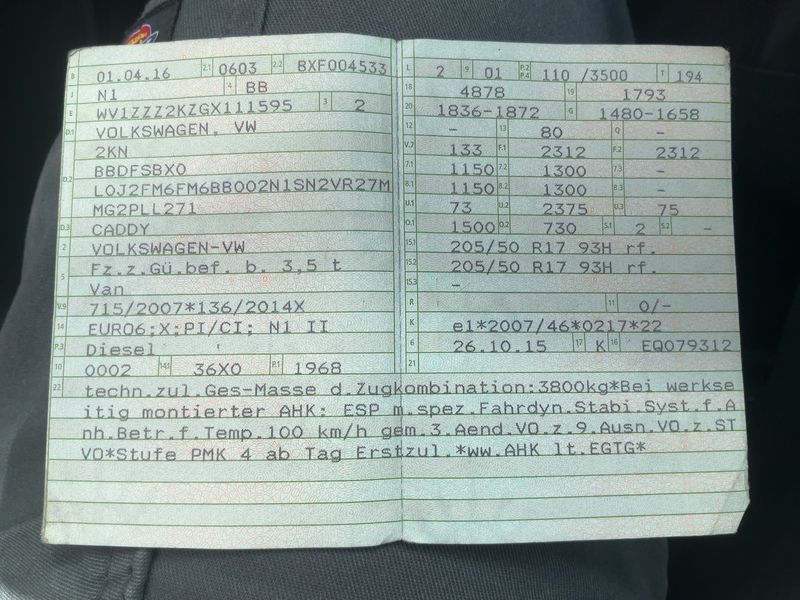 B 01.04.16 2.1 0603 2.2 BXF004533
J N1 4 BB
E WV1ZZZ2KZGX111595 3 2
D.1 VOLKSWAGEN, VW
2KN
D.2 BBDFSBX0
LOJ2FM6FM6BB002N1SN2VR27M
MG2PLL271
D.3 CADDY
2 VOLKSWAGEN-VW
5 Fz.z.Gü.bef. b. 3,5 t
Van
V.9 715/2007*136/2014X
14 EURO6;X;PI/CI; N1 II
P.3 Diesel
10 0002 14.1 36X0 P.1 1968
L 2 9 01 P.2 P.4 110 /3500 T 194
18 4878 19 1793
20 1836-1872 G 1480-1658
12 - 13 80 Q -
V.7 133 F.1 2312 F.2 2312
7.1 1150 7.2 1300 7.3 -
8.1 1150 8.2 1300 8.3 -
U.1 73 U.2 2375 U.3 75
O.1 1500 O.2 730 S.1 2 S.2 -
15.1 205/50 R17 93H rf.
15.2 205/50 R17 93H rf.
15.3 -
R 11 0/-
K e1*2007/46*0217*22
6 26.10.15 17 K 16 EQ079312
21
22 techn.zul.Ges-Masse d.Zugkombination:3800kg*Bei werkse
itig montierter AHK: ESP m.spez.Fahrdyn.Stabi.Syst.f.A
nh.Betr.f.Temp.100 km/h gem.3.Aend.VO.z.9.Ausn.VO.z.ST
VO*Stufe PMK 4 ab Tag Erstzul.*ww.AHK lt.EGTG*